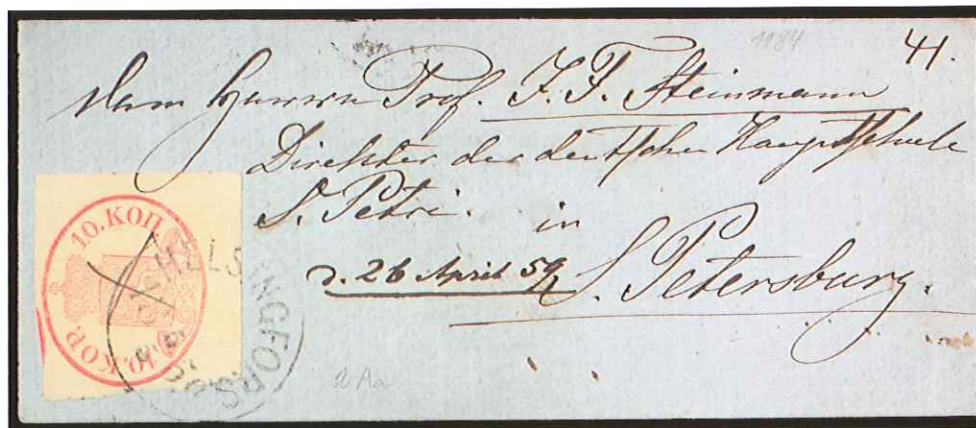 1184
41.
Dem Herrn Prof. J. F. Steinmann
Direktor der deutschen Hauptschule
S. Petri.
in
d. 26 April 59
S. Petersburg.
10.КОП.
10.KOP.
HELSINGFORS
2 Aa